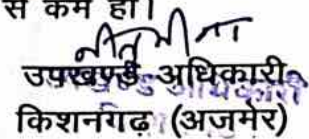 से कम हो।
उपखण्ड अधिकारी
किशनगढ़ (अजमेर)